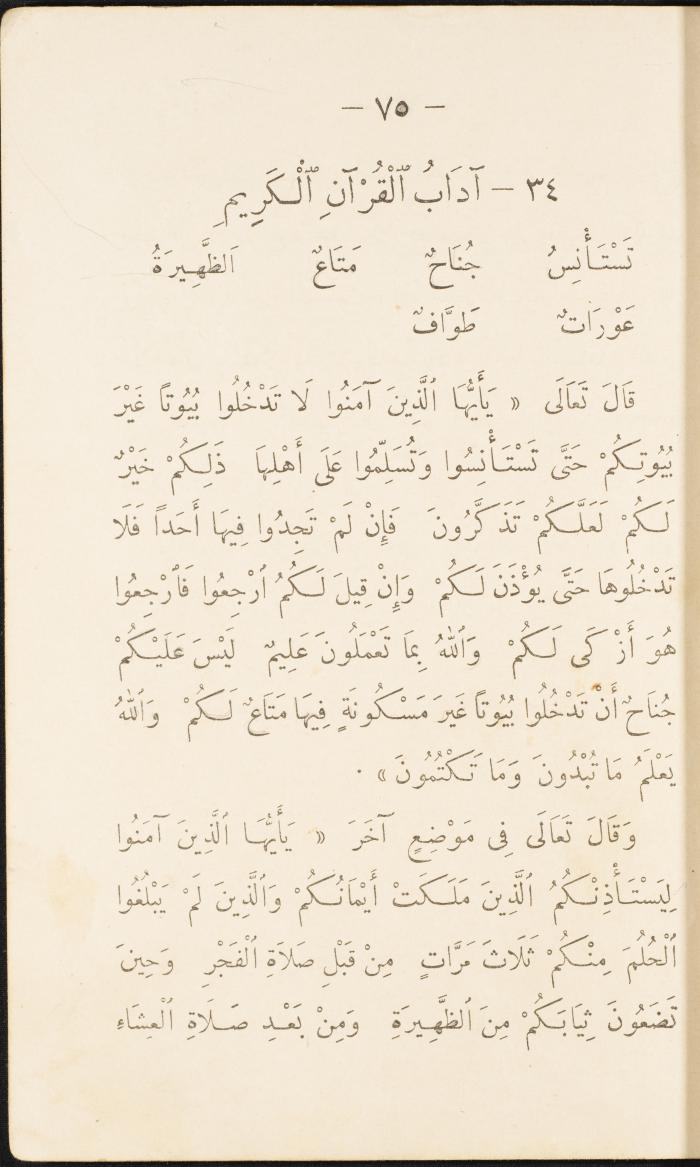 — ٧٥ —
٣٤ — آدَابُ ٱلْقُرْآنِ ٱلْكَرِيمِ
تَسْتَأْنِسُ جُنَاحٌ مَتَاعٌ اَلظَّهِيرَةُ
عَوْرَاتٌ طَوَّافٌ
قَالَ تَعَالَى « يَأَيُّهَا ٱلَّذِينَ آمَنُوا لَا تَدْخُلُوا بُيُوتاً غَيْرَ
بُيُوتِكُمْ حَتَّى تَسْتَأْنِسُوا وَتُسَلِّمُوا عَلَى أَهْلِهَا ذَلِكُمْ خَيْرٌ
لَكُمْ لَعَلَّكُمْ تَذَكَّرُونَ فَإِنْ لَمْ تَجِدُوا فِيهَا أَحَداً فَلَا
تَدْخُلُوهَا حَتَّى يُؤْذَنَ لَكُمْ وَإِنْ قِيلَ لَكُمُ ٱرْجِعُوا فَٱرْجِعُوا
هُوَ أَزْكَى لَكُمْ وَٱللهُ بِمَا تَعْمَلُونَ عَلِيمٌ لَيْسَ عَلَيْكُمْ
جُنَاحٌ أَنْ تَدْخُلُوا بُيُوتاً غَيرَ مَسْكُونَةٍ فِيهَا مَتَاعٌ لَكُمْ وَٱللهُ
يَعْلَمُ مَا تُبْدُونَ وَمَا تَكْتُمُونَ » .
وَقَالَ تَعَالَى فِى مَوْضِعٍ آخَرَ « يَأَيُّهَا ٱلَّذِينَ آمَنُوا
لِيَسْتَأْذِنْكُمُ ٱلَّذِينَ مَلَكَتْ أَيْمَانُكُمْ وَٱلَّذِينَ لَمْ يَبْلُغُوا
ٱلْحُلُمَ مِنْكُمْ ثَلَاثَ مَرَّاتٍ مِنْ قَبْلِ صَلَاةِ ٱلْفَجْرِ وَحِينَ
تَضَعُونَ ثِيَابَكُمْ مِنَ ٱلظَّهِيرَةِ وَمِنْ بَعْدِ صَلَاةِ ٱلْعِشَاءِ